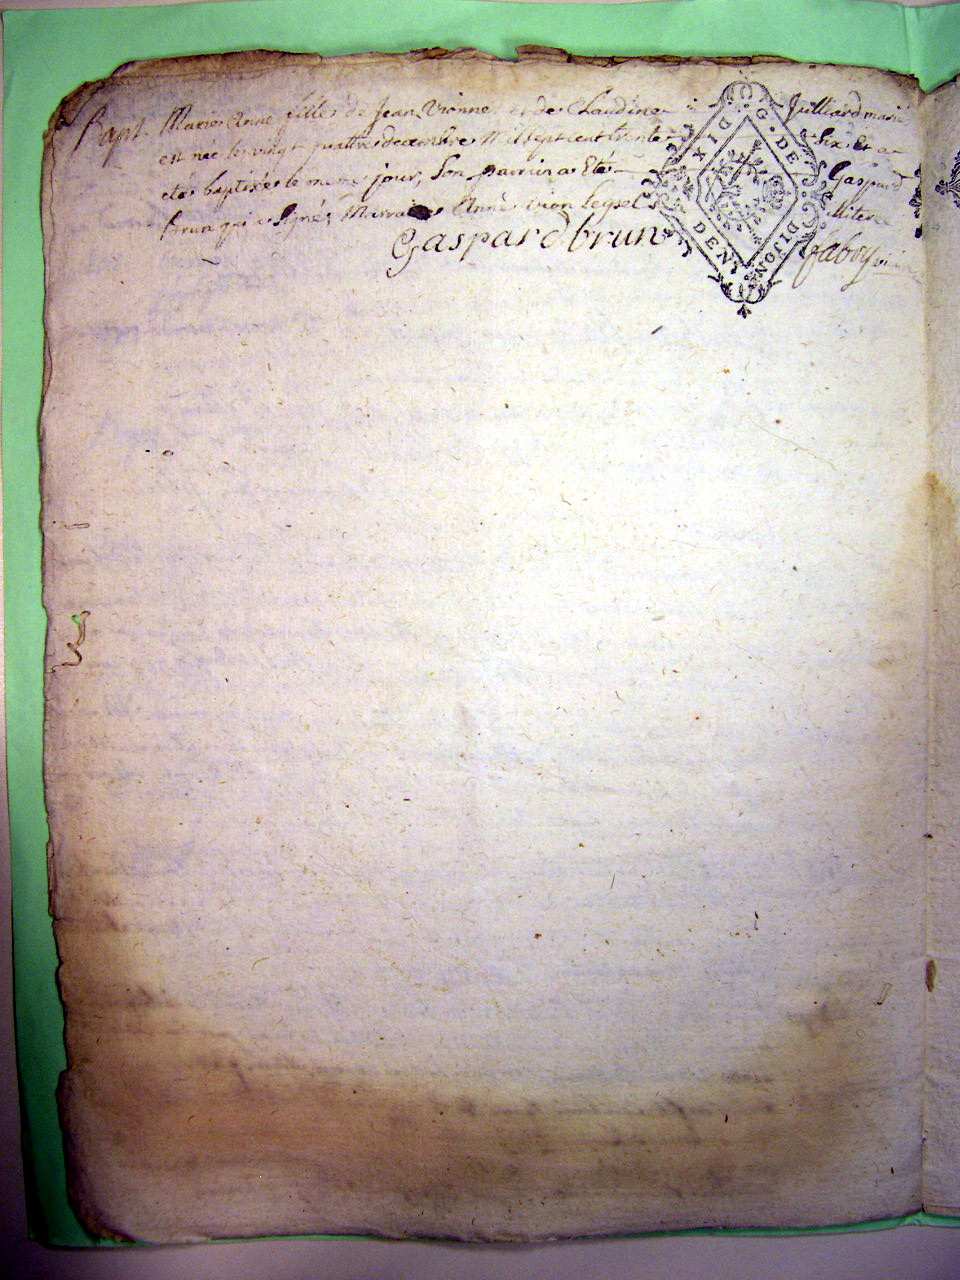 Bapt. Marie Anne fille de Jean Vionne et de Claudine Juilliard mariés
est née le vingt quattre decembre Mil sept cent trente Six Et a
eté baptisée le meme jour, Son parrain a Eté Gaspard
brun qui a Signé, Marraine Anne
Gaspard brun
G. DE DIJON
SIX DEN